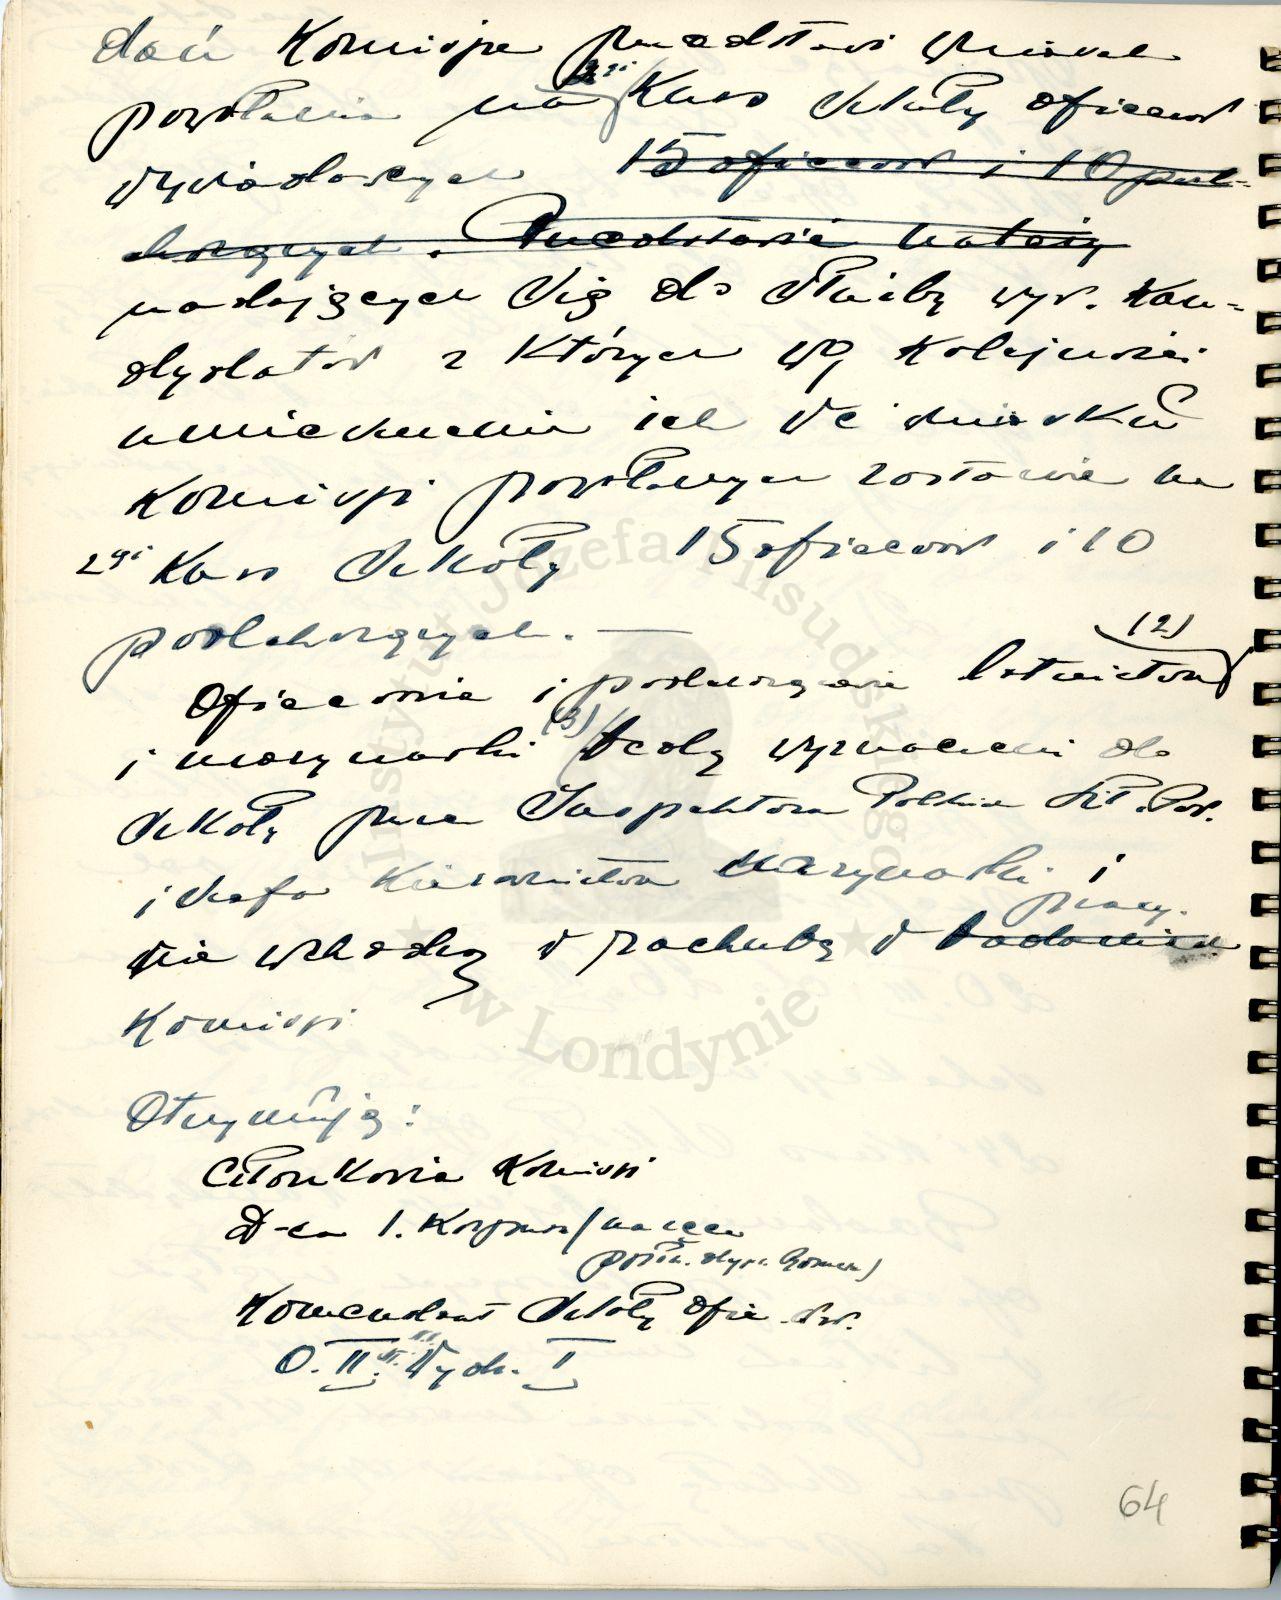 dań Komisja przedstawi wniosek
powołania na 2gi Kurs Szkoły oficerów
wywiadowczych 15 oficerów i 10 pod-
chorążych. Przedstawić należy
nadających się do służby wyw. kan-
dydatów z których wg kolejności
umieszczenia ich we wniosku
Komisji powołanych zostanie na
2gi Kurs Szkoły 15 oficerów i 10
podchorążych. —
Oficerowie i podchorążowie lotnictwa (2)
i marynarki (3) będą wyznaczeni do
Szkoły przez Inspektora Polskich Sił. Pow.
i Szefa Kierownictwa Marynarki i
nie wchodzą w rachubę w badaniach pracy.
Komisji
Otrzymują:
Członkowie Komisji
D-ca 1. Korpusu / na ręce
Komendant Szkoły Ofic. Wyw.
O. II. Wydz. I
64
Instytut Józefa Piłsudskiego
w Londynie